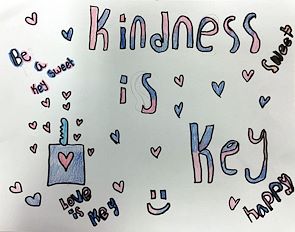 Kindness
is
Key
Be a
key sweet
sweet
Love
is key
happy